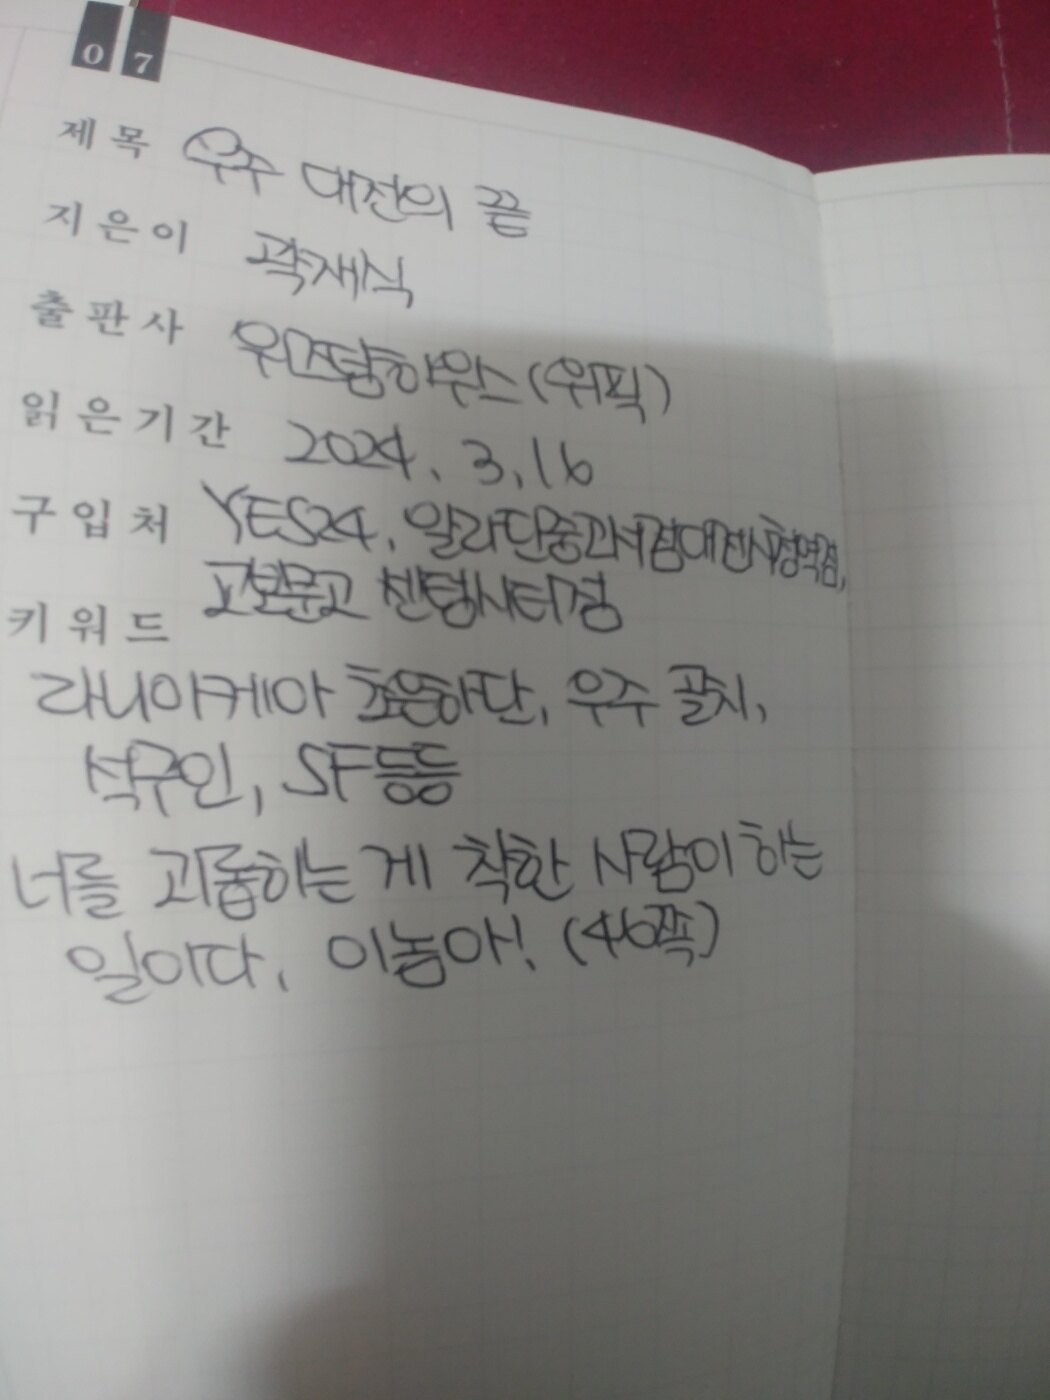 07
제목 우주 대전의 끝
지은이 곽재식
출판사 위즈덤하우스 (위픽)
읽은기간 2024. 3. 16
구입처 YES24, 알라딘중고서점대전시청역점,
교보문고 센텀시티점
키워드
라니아케아 초은하단, 우주 골치,
석구인, SF 등등
너를 괴롭히는 게 착한 사람이 하는
일이다, 이놈아! (46쪽)